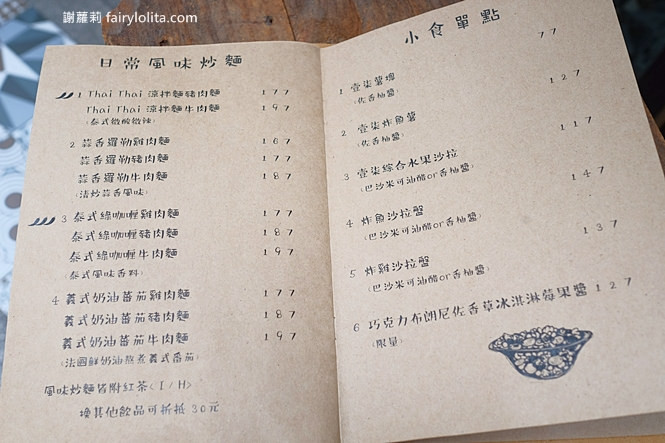 謝蘿莉 fairylolita.com
日常風味炒麵
1 Thai Thai 涼拌麵豬肉麵 177
Thai Thai 涼拌麵牛肉麵 197
(泰式微酸微辣)
2 蒜香羅勒雞肉麵 167
蒜香羅勒豬肉麵 177
蒜香羅勒牛肉麵 187
(法炒蒜香風味)
3 泰式綠咖喱雞肉麵 177
泰式綠咖喱豬肉麵 187
泰式綠咖喱牛肉麵 197
(泰式風味香料)
4 義式奶油蕃茄雞肉麵 177
義式奶油蕃茄豬肉麵 187
義式奶油蕃茄牛肉麵 197
(法國鮮奶油熬煮義式蕃茄)
風味炒麵皆附紅茶(I/H)
換其他飲品可折抵30元
小食單點
1 壹柒薯塊 77
(佐香柚醬)
2 壹柒炸魚薯 127
(佐香柚醬)
3 壹柒綜合水果沙拉 117
(巴沙米可油醋or香柚醬)
4 炸魚沙拉盤 147
(巴沙米可油醋or香柚醬)
5 炸雞沙拉盤 137
(巴沙米可油醋or香柚醬)
6 巧克力布朗尼佐香草冰淇淋莓果醬 127
(限量)